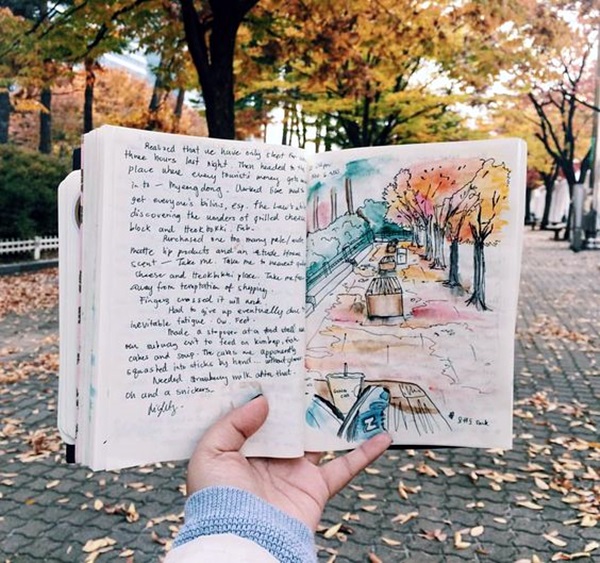 Realised that we have only slept for
three hours last night. Then headed to the
place where every tourists' money gets
into - Myeongdong. Worked like mad to
get everyone's
discovering the wonders of grilled cheese
block and tteokbokki. Fab.
Purchased one too many pale/nude
matte lip products and an Etude House
scent - Take me. Take me to heavenly grilled
cheese and tteokbokki place. Take me far
away from temptation of shopping.
Fingers crossed it will end.
Had to give up eventually due to
inevitable fatigue. Ow. Feet.
Made a stopover at a food stall
our subway exit to feed on kimbap, fish
cakes and soup. The cakes are apparently
squashed into sticks by hand... without gloves
Needed strawberry milk after that.
Oh and a snickers.
Nights.
Park